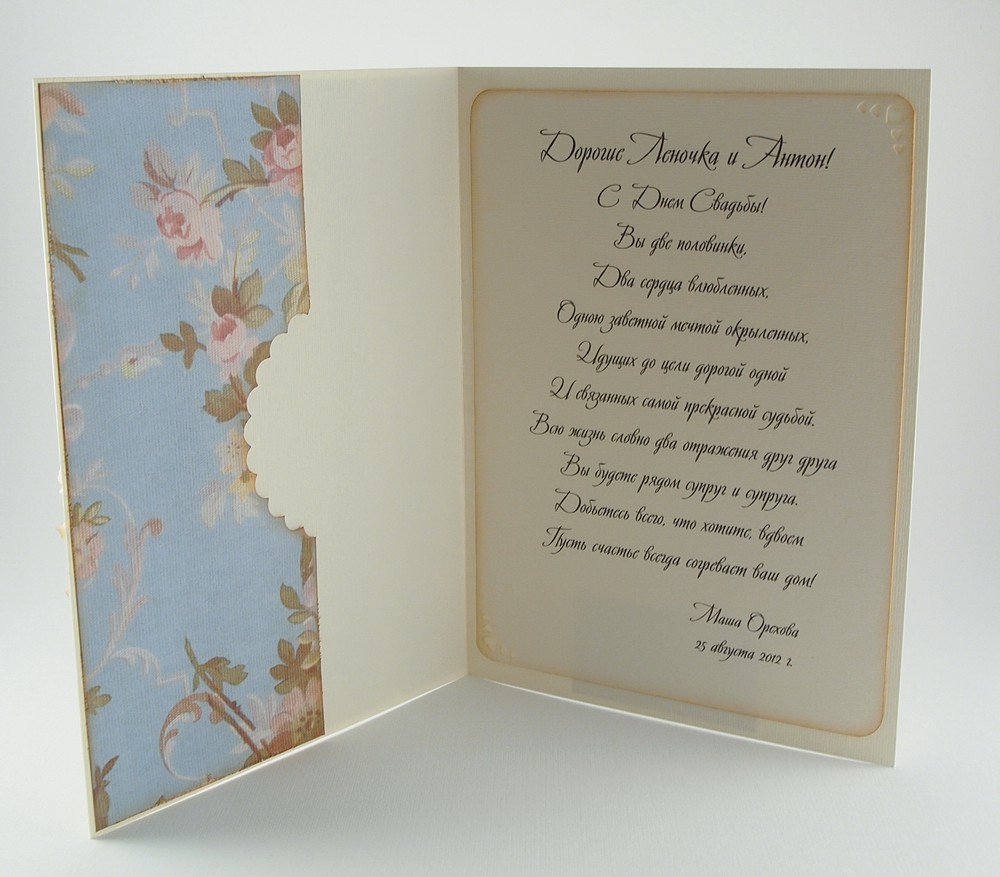 Дорогие Леночка и Антон!
С Днем Свадьбы!
Вы две половинки,
Два сердца влюбленных,
Одною заветной мечтой окрыленных,
Идущих до цели дорогой одной
И связанных самой прекрасной судьбой.
Всю жизнь словно два отражения друг друга
Вы будете рядом супруг и супруга.
Добьетесь всего, что хотите, вдвоем
Пусть счастье всегда согревает ваш дом!
Маша Орехова
25 августа 2012 г.